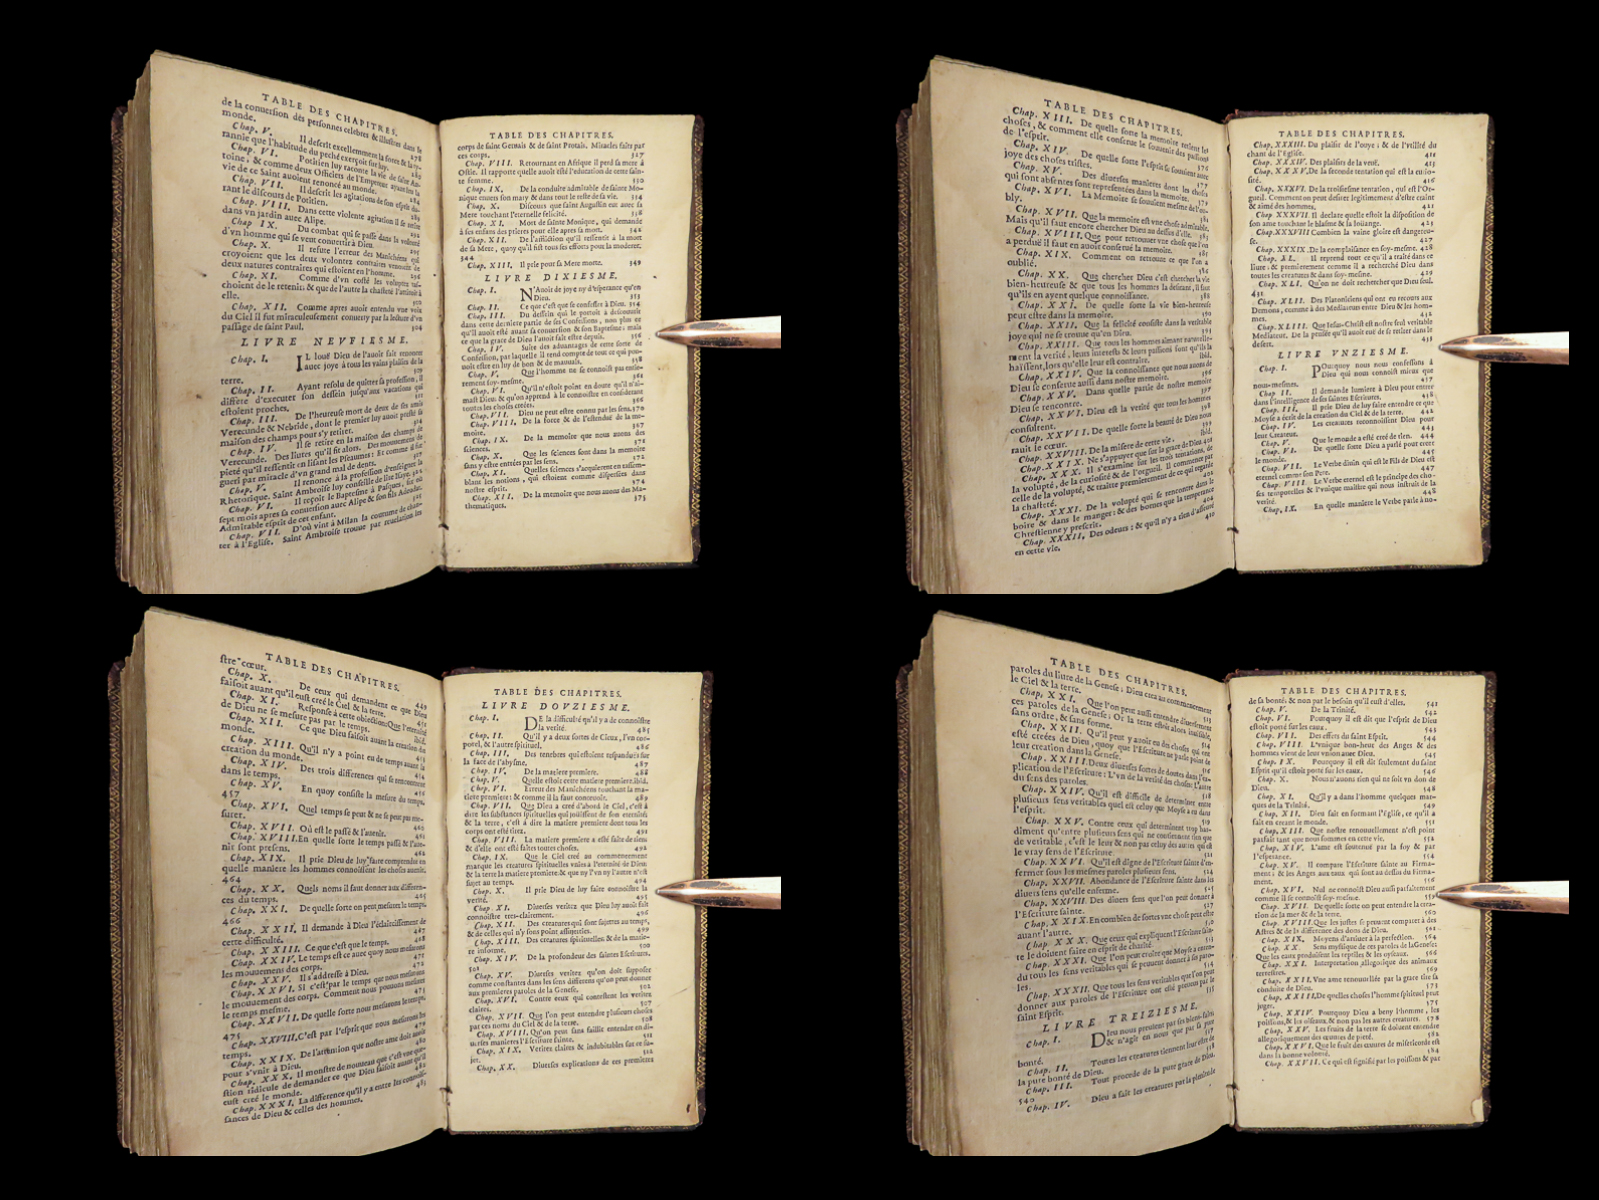 TABLE DES CHAPITRES.
de la conuersion des personnes celebres & illustres dans le
monde.
Chap. V. Il descrit excellemment la force & la ty-
rannie que l'habitude du peché exerçoit sur luy.
Chap. VI. Potitien luy raconte la vie de saint An-
toine, & comme deux Officiers de l'Empereur ayant leu la
vie de ce Saint auoient renoncé au monde.
Chap. VII. Il descrit les agitations de son esprit du-
rant le discours de Potitien.
Chap. VIII. Dans cette violente agitation il se retire
dans vn jardin auec Alipe.
Chap. IX. Du combat qui se passe dans la volonté
d'vn homme qui se veut conuertir à Dieu.
Chap. X. Il refute l'erreur des Manichéens qui
croyoient que les deux volontez contraires venoient de
deux natures contraires qui estoient en l'homme.
Chap. XI. Comme d'vn costé les voluptez tas-
choient de le retenir; & que de l'autre la chasteté l'attiroit à
elle.
Chap. XII. Comme apres auoir entendu vne voix
du Ciel il fut miraculeusement conuerty par la lecture d'vn
passage de saint Paul. 304
LIVRE NEVFIESME.
Chap. I. IL louë Dieu de l'auoir fait renoncer
auec joye à tous les vains plaisirs de la
terre.
Chap. II. Ayant resolu de quitter sa profession, il
differe d'executer son dessein jusqu'aux vacations qui
estoient proches.
Chap. III. De l'heureuse mort de deux de ses amis
Verecunde & Nebride, dont le premier luy auoit presté sa
maison des champs pour s'y retirer.
Chap. IV. Il se retire en la maison des champs de
Verecunde. Des liures qu'il fit alors. Des mouuemens de
pieté qu'il ressentit en lisant les Pseaumes: Et comme il fut
guery par miracle d'vn grand mal de dents.
Chap. V. Il renonce à la profession d'enseigner la
Rhetorique. Saint Ambroise luy conseille de lire Isaye.
Chap. VI. Il reçoit le Baptesme à Pasques,
sept mois apres sa conuersion auec Alipe & son fils Adeodat.
Admirable esprit de cet enfant.
Chap. VII. D'où vint à Milan la coutume de chan-
ter à l'Eglise. Saint Ambroise trouue par reuelation les
TABLE DES CHAPITRES.
corps de saint Geruais & de saint Protais. Miracles faits par
ces corps. 327
Chap. VIII. Retournant en Afrique il perd sa mere à
Ostie. Il rapporte quelle auoit esté l'education de cette sain-
te femme. 330
Chap. IX. De la conduite admirable de sainte Mo-
nique enuers son mary & dans tout le reste de sa vie. 334
Chap. X. Discours que saint Augustin eut auec sa
Mere touchant l'eternelle felicité. 338
Chap. XI. Mort de sainte Monique, qui demande
à ses enfans des prieres pour elle apres sa mort. 342
Chap. XII. De l'affliction qu'il ressentit à la mort
de sa Mere, quoy qu'il fist tous ses efforts pour la moderer.
344
Chap. XIII. Il prie pour sa Mere morte. 349
LIVRE DIXIESME.
Chap. I. N'Auoir de joye ny d'esperance qu'en
Dieu. 353
Chap. II. Ce que c'est que se confesser à Dieu. 354
Chap. III. Du dessein qui le portoit à découurir
dans cette derniere partie de ses Confessions, non plus ce
qu'il auoit esté auant sa conuersion & son Baptesme: mais
ce que la grace de Dieu l'auoit fait estre depuis. 356
Chap. IV. Suite des aduantages de cette sorte de
Confession, par laquelle il rend compte de tout ce qui pou-
uoit estre en luy de bon & de mauuais. 358
Chap. V. Que l'homme ne se connoist pas entie-
rement soy-mesme. 361
Chap. VI. Qu'il n'estoit point en doute qu'il n'ai-
mast Dieu; & qu'on apprend à le connoistre en considerant
toutes les choses creées. 366
Chap. VII. Dieu ne peut estre connu par les sens. 370
Chap. VIII. De la force & de l'estenduë de la me-
moire. 367
Chap. IX. De la memoire que nous auons des
sciences. 371
Chap. X. Que les sciences sont dans la memoire
sans y estre entrées par les sens. 372
Chap. XI. Quelles sciences s'acquierent en rassem-
blant les notions, qui estoient comme dispersées dans
nostre esprit. 374
Chap. XII. De la memoire que nous auons des Ma-
thematiques. 375
TABLE DES CHAPITRES.
Chap. XIII. De quelle sorte la memoire retient les
choses, & comment elle conserue le souuenir des passions
de l'esprit.
Chap. XIV. De quelle sorte l'esprit se souuient auec
joye des choses tristes. 377
Chap. XV. Des diuerses manieres dont les choses
qui sont absentes sont representées dans la memoire. 379
Chap. XVI. La Memoire se souuient mesme de l'ou-
bly.
Chap. XVII. Que la memoire est vne chose admirable.
Mais qu'il faut encore chercher Dieu au dessus d'elle. 383
Chap. XVIII. Que pour retrouuer vne chose que l'on
a perduë il faut en auoir conserué la memoire. 385
Chap. XIX. Comment on retrouue ce que l'on a
oublié. 386
Chap. XX. Que chercher Dieu c'est chercher la vie
bien-heureuse & que tous les hommes la desirant, il faut
qu'ils en ayent quelque connoissance. 388
Chap. XXI. De quelle sorte la vie bien-heureuse
peut estre dans la memoire. 390
Chap. XXII. Que la felicité consiste dans la veritable
joye qui ne se trouue qu'en Dieu. 393
Chap. XXIII. Que tous les hommes aimant naturelle-
ment la verité, leurs interests & leurs passions font qu'ils la
haïssent, lors qu'elle leur est contraire. ibid.
Chap. XXIV. Que la connoissance que nous auons de
Dieu se conserue aussi dans nostre memoire. 396
Chap. XXV. Dans quelle partie de nostre memoire
Dieu se rencontre. 397
Chap. XXVI. Dieu est la verité que tous les hommes
consultent. 398
Chap. XXVII. De quelle sorte la beauté de Dieu nous
rauit le cœur. 399
Chap. XXVIII. De la misere de cette vie. ibid.
Chap. XXIX. Ne s'appuyer que sur la grace de Dieu. 401
Chap. XXX. Il s'examine sur les trois tentations, de
la volupté, de la curiosité & de l'orgueil. Il commence par
celle de la volupté, & traitte premierement de ce qui regarde
la chasteté. 402
Chap. XXXI. De la volupté qui se rencontre dans le
boire & dans le manger: & des bornes que la temperance
Chrestienne y prescrit. 404
Chap. XXXII. Des odeurs: & qu'il n'y a rien d'assuré
en cette vie. 410
TABLE DES CHAPITRES.
Chap. XXXIII. Du plaisir de l'ouye; & de l'vtilité du
chant de l'Eglise. 411
Chap. XXXIV. Des plaisirs de la veuë. 413
Chap. XXXV. De la seconde tentation qui est la curio-
sité. 416
Chap. XXXVI. De la troisiesme tentation, qui est l'Or-
gueil. Comment on peut desirer legitimement d'estre craint
& aimé des hommes. 421
Chap. XXXVII. Il declare quelle estoit la disposition de
son ame touchant le blasme & la loüange. 423
Chap. XXXVIII. Combien la vaine gloire est dangereu-
se. 427
Chap. XXXIX. De la complaisance en soy-mesme. 428
Chap. XL. Il reprend tout ce qu'il a traité dans ce
liure: & premierement comme il a recherché Dieu dans
toutes les creatures & dans soy-mesme. 429
Chap. XLI. Qu'on ne doit rechercher que Dieu seul.
431
Chap. XLII. Des Platoniciens qui ont eu recours aux
Demons, comme à des Mediateurs entre Dieu & les hom-
mes. 432
Chap. XLIII. Que Iesus-Christ est nostre seul veritable
Mediateur. De la pensée qu'il auoit euë de se retirer dans le
desert. 433
LIVRE VNZIESME.
Chap. I. POurquoy nous nous confessons à
Dieu qui nous connoist mieux que
nous-mesmes. 437
Chap. II. Il demande lumiere à Dieu pour entrer
dans l'intelligence de ses saintes Escritures. 438
Chap. III. Il prie Dieu de luy faire entendre ce que
Moyse a écrit de la creation du Ciel & de la terre. 442
Chap. IV. Les creatures reconnoissent Dieu pour
leur Createur. 443
Chap. V. Que le monde a esté creé de rien. 444
Chap. VI. De quelle sorte Dieu a parlé pour creer
le monde. 445
Chap. VII. Le Verbe diuin qui est le Fils de Dieu est
eternel comme son Pere. 447
Chap. VIII. Le Verbe eternel est le principe des cho-
ses temporelles & l'vnique maistre qui nous instruit de la
verité. 448
Chap. IX. En quelle maniere le Verbe parle à no-
TABLE DES CHAPITRES.
stre cœur. 449
Chap. X. De ceux qui demandent ce que Dieu
faisoit auant qu'il eust creé le Ciel & la terre. 451
Chap. XI. Response à cette obiection: Que l'eternité
de Dieu ne se mesure pas par le temps. ibid.
Chap. XII. Ce que Dieu faisoit auant la creation du
monde.
Chap. XIII. Qu'il n'y a point eu de temps auant la
creation du monde. 453
Chap. XIV. Des trois differences qui se rencontrent
dans le temps. 454
Chap. XV. En quoy consiste la mesure du temps.
457
Chap. XVI. Quel temps se peut & ne se peut pas me-
surer.
Chap. XVII. Où est le passé & l'auenir.
Chap. XVIII. En quelle sorte le temps passé & l'aue-
nir sont presens.
Chap. XIX. Il prie Dieu de luy faire comprendre en
quelle maniere les hommes connoissent les choses auenir.
464
Chap. XX. Quels noms il faut donner aux differen-
ces du temps. 465
Chap. XXI. De quelle sorte on peut mesurer le temps.
466
Chap. XXII. Il demande à Dieu l'éclaircissement de
cette difficulté. 467
Chap. XXIII. Ce que c'est que le temps. 468
Chap. XXIV. Le temps est ce auec quoy nous mesurons
les mouuemens des corps. 471
Chap. XXV. Il s'addresse à Dieu. 472
Chap. XXVI. Si c'est par le temps que nous mesurons
le mouuement des corps. Comment nous pouuons mesurer
le temps mesme. 473
Chap. XXVII. De quelle sorte nous mesurons le temps.
475
Chap. XXVIII. C'est par l'esprit que nous mesurons les
temps. 479
Chap. XXIX. De l'attention que nostre ame doit auoir
pour s'vnir à Dieu. 480
Chap. XXX. Il monstre de nouueau que c'est vne que-
stion ridicule de demander ce que Dieu faisoit auant qu'il
eust creé le monde. 482
Chap. XXXI. La difference qu'il y a entre les connois-
sances de Dieu & celles des hommes. 483
TABLE DES CHAPITRES.
LIVRE DOVZIESME.
Chap. I. DE la difficulté qu'il y a de connoistre
la verité. 485
Chap. II. Qu'il y a deux sortes de Cieux, l'vn cor-
porel, & l'autre spirituel. 486
Chap. III. Des tenebres qui estoient respanduës sur
la face de l'abysme. 487
Chap. IV. De la matiere premiere. 488
Chap. V. Quelle estoit cette matiere premiere. ibid.
Chap. VI. Erreur des Manichéens touchant la ma-
tiere premiere: & comme il la faut conceuoir. 489
Chap. VII. Que Dieu a creé d'abord le Ciel, c'est à
dire les substances spirituelles qui joüissent de son eternité;
& la terre, c'est à dire la matiere premiere dont tous les
corps ont esté tirez. 491
Chap. VIII. La matiere premiere a esté faite de rien
& d'elle ont esté faites toutes choses. 492
Chap. IX. Que le Ciel creé au commencement
marque les creatures spirituelles vnies à l'eternité de Dieu:
& la terre la matiere premiere: & que ny l'vn ny l'autre n'est
sujet au temps. 494
Chap. X. Il prie Dieu de luy faire connoistre la
verité. 495
Chap. XI. Diuerses veritez que Dieu luy auoit fait
connoistre tres-clairement. 496
Chap. XII. Des creatures qui sont sujettes au temps,
& de celles qui n'y sont point assujetties. 499
Chap. XIII. Des creatures spirituelles & de la matie-
re informe. 500
Chap. XIV. De la profondeur des saintes Escritures.
501
Chap. XV. Diuerses veritez qu'on doit supposer
comme constantes dans les sens differens qu'on peut donner
aux premieres paroles de la Genese. 502
Chap. XVI. Contre ceux qui contestent les veritez
claires. 507
Chap. XVII. Que l'on peut entendre plusieurs choses
par ces noms du Ciel & de la terre. 508
Chap. XVIII. Qu'on peut sans faillir entendre en di-
uerses manieres l'Escriture sainte. 511
Chap. XIX. Veritez claires & indubitables sur ce su-
jet. 512
Chap. XX. Diuerses explications de ces premieres
TABLE DES CHAPITRES.
paroles du liure de la Genese: Dieu crea au commencement
le Ciel & la terre. 513
Chap. XXI. Que l'on peut aussi entendre diuersement
ces paroles de la Genese: Or la terre estoit alors inuisible,
sans ordre, & sans forme. 514
Chap. XXII. Qu'il peut y auoir eu des choses qui ont
esté creées de Dieu, quoy que l'Escriture ne parle point de
leur creation dans la Genese.
Chap. XXIII. Deux diuerses sortes de doutes dans l'ex-
plication de l'Escriture: L'vn de la verité des choses: L'autre
du sens des paroles.
Chap. XXIV. Qu'il est difficile de determiner entre
plusieurs sens veritables quel est celuy que Moyse a eu dans
l'esprit.
Chap. XXV. Contre ceux qui determinent trop har-
diment qu'entre plusieurs sens qui ne contiennent rien que
de veritable, c'est le leur & non pas celuy des autres qui est
le vray sens de l'Escriture. 521
Chap. XXVI. Qu'il est digne de l'Escriture sainte d'en-
fermer sous les mesmes paroles plusieurs sens. 524
Chap. XXVII. Abondance de l'Escriture sainte dans les
diuers sens qu'elle enferme. 525
Chap. XXVIII. Des diuers sens que l'on peut donner à
l'Escriture sainte. 527
Chap. XXIX. En combien de sortes vne chose peut estre
auant l'autre.
Chap. XXX. Que ceux qui expliquent l'Escriture sain-
te le doiuent faire en esprit de charité. 531
Chap. XXXI. Que l'on peut croire que Moyse a enten-
du tous les sens veritables qui se peuuent donner à ses paro-
les.
Chap. XXXII. Que tous les sens veritables que l'on peut
donner aux paroles de l'Escriture ont esté preueus par le
saint Esprit. 535
LIVRE TREIZIESME.
Chap. I. DIeu nous preuient par ses bien-faits
& n'agit en nous que par sa pure
bonté.
Chap. II. Toutes les creatures tiennent leur estre de
la pure bonté de Dieu.
Chap. III. Tout procede de la pure grace de Dieu.
540
Chap. IV. Dieu a fait les creatures par la plenitude
TABLE DES CHAPITRES.
de sa bonté, & non par le besoin qu'il eust d'elles. 541
Chap. V. De la Trinité. 542
Chap. VI. Pourquoy il est dit que l'esprit de Dieu
estoit porté sur les eaux. 543
Chap. VII. Des effets du saint Esprit. 544
Chap. VIII. L'vnique bon-heur des Anges & des
hommes vient de leur vnion auec Dieu. 545
Chap. IX. Pourquoy il est dit seulement du saint
Esprit qu'il estoit porté sur les eaux. 546
Chap. X. Nous n'auons rien qui ne soit vn don de
Dieu. 548
Chap. XI. Qu'il y a dans l'homme quelques mar-
ques de la Trinité. 549
Chap. XII. Dieu fait en formant l'Eglise, ce qu'il a
fait en creant le monde. 551
Chap. XIII. Que nostre renouuellement n'est point
parfait tant que nous sommes en cette vie. 552
Chap. XIV. L'ame est soustenuë par la foy & par
l'esperance. 554
Chap. XV. Il compare l'Escriture sainte au Firma-
ment: & les Anges aux eaux qui sont au dessus du Firma-
ment. 556
Chap. XVI. Nul ne connoist Dieu aussi parfaitement
comme il se connoist soy-mesme. 559
Chap. XVII. De quelle sorte on peut entendre la crea-
tion de la mer & de la terre. 560
Chap. XVIII. Que les justes se peuuent comparer à des
Astres & de la difference des dons de Dieu. 561
Chap. XIX. Moyens d'arriuer à la perfection. 564
Chap. XX. Sens mystique de ces paroles de la Genese:
Que les eaux produisent les reptiles & les oyseaux. 566
Chap. XXI. Interpretation allegorique des animaux
terrestres. 569
Chap. XXII. Vne ame renouuellée par la grace tire sa
conduite de Dieu. 573
Chap. XXIII. De quelles choses l'homme spirituel peut
juger. 575
Chap. XXIV. Pourquoy Dieu a beny l'homme, les
poissons, & les oiseaux, & non pas les autres creatures. 578
Chap. XXV. Les fruits de la terre se doiuent entendre
allegoriquement des œuures de pieté. 582
Chap. XXVI. Que le fruit des œuures de misericorde est
dans la bonne volonté. 584
Chap. XXVII. Ce qui est signifié par les poissons & par